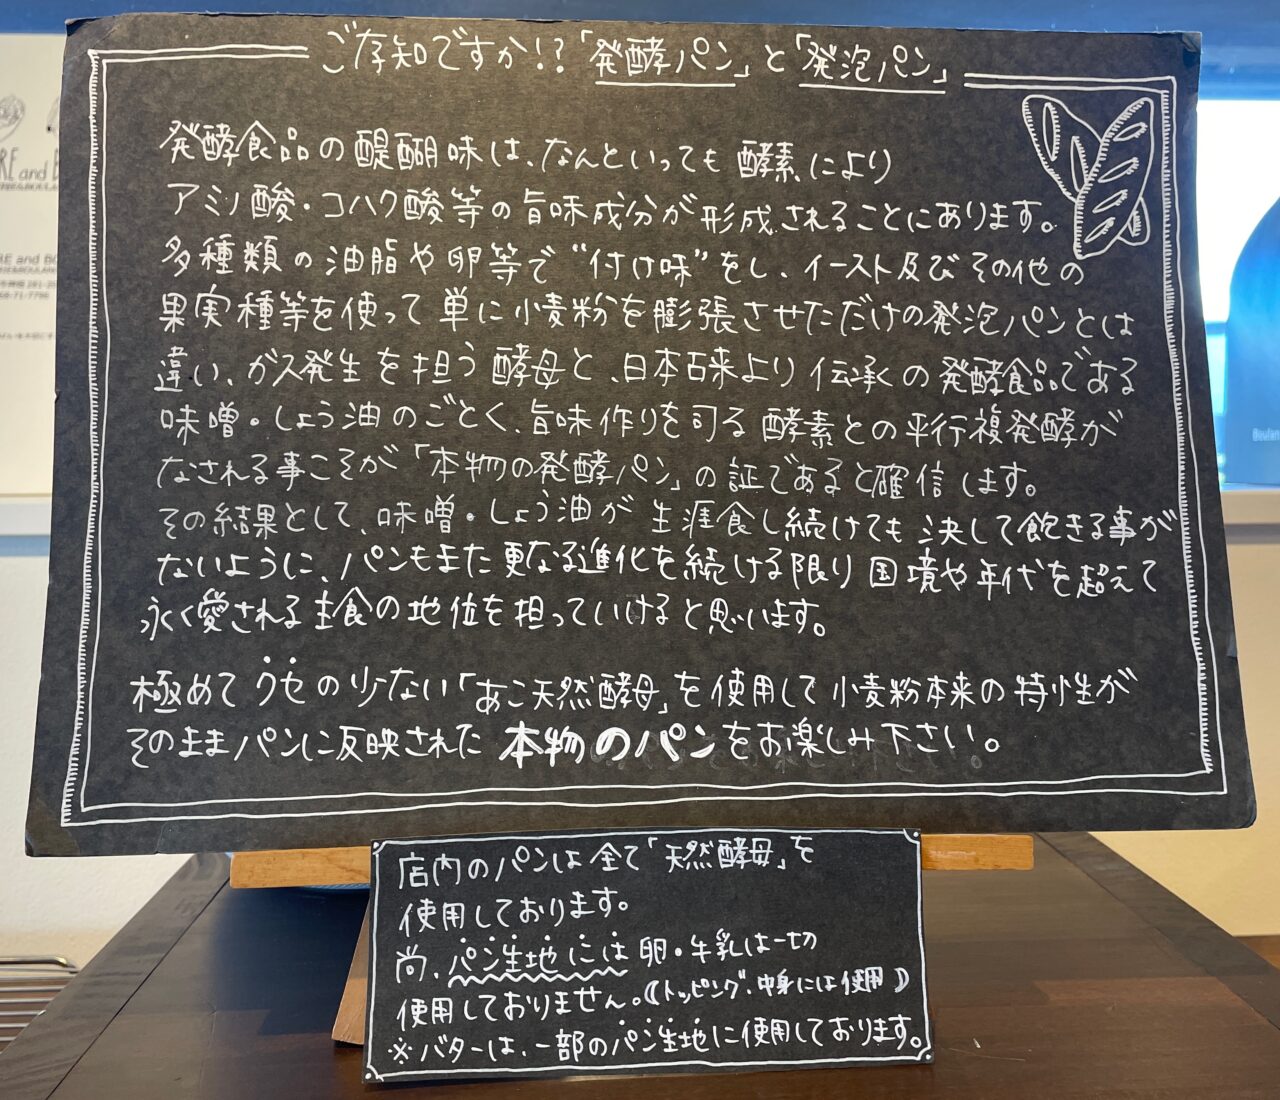 ご存知ですか!?「発酵パン」と「発泡パン」
発酵食品の醍醐味は、なんといっても酵素により
アミノ酸・コハク酸等の旨味成分が形成されることにあります。
多種類の油脂や卵等で“付け味”をし、イースト及びその他の
果実種等を使って単に小麦粉を膨張させただけの発泡パンとは
違い、ガス発生を担う酵母と、日本古来より伝承の発酵食品である
味噌・しょう油のごとく、旨味作りを司る酵素との平行複発酵が
なされる事こそが「本物の発酵パン」の証であると確信します。
その結果として、味噌・しょう油が生涯食し続けても決して飽きる事が
ないように、パンもまた更なる進化を続ける限り国境や年代を超えて
永く愛される主食の地位を担っていけると思います。
極めてクセの少ない「あこ天然酵母」を使用して小麦粉本来の特性が
そのままパンに反映された本物のパンをお楽しみ下さい。
店内のパンは全て「天然酵母」を
使用しております。
尚、パン生地には卵・牛乳は一切
使用しておりません。(トッピング、中身には使用)
※バターは、一部のパン生地に使用しております。
RE and B
RE and BO